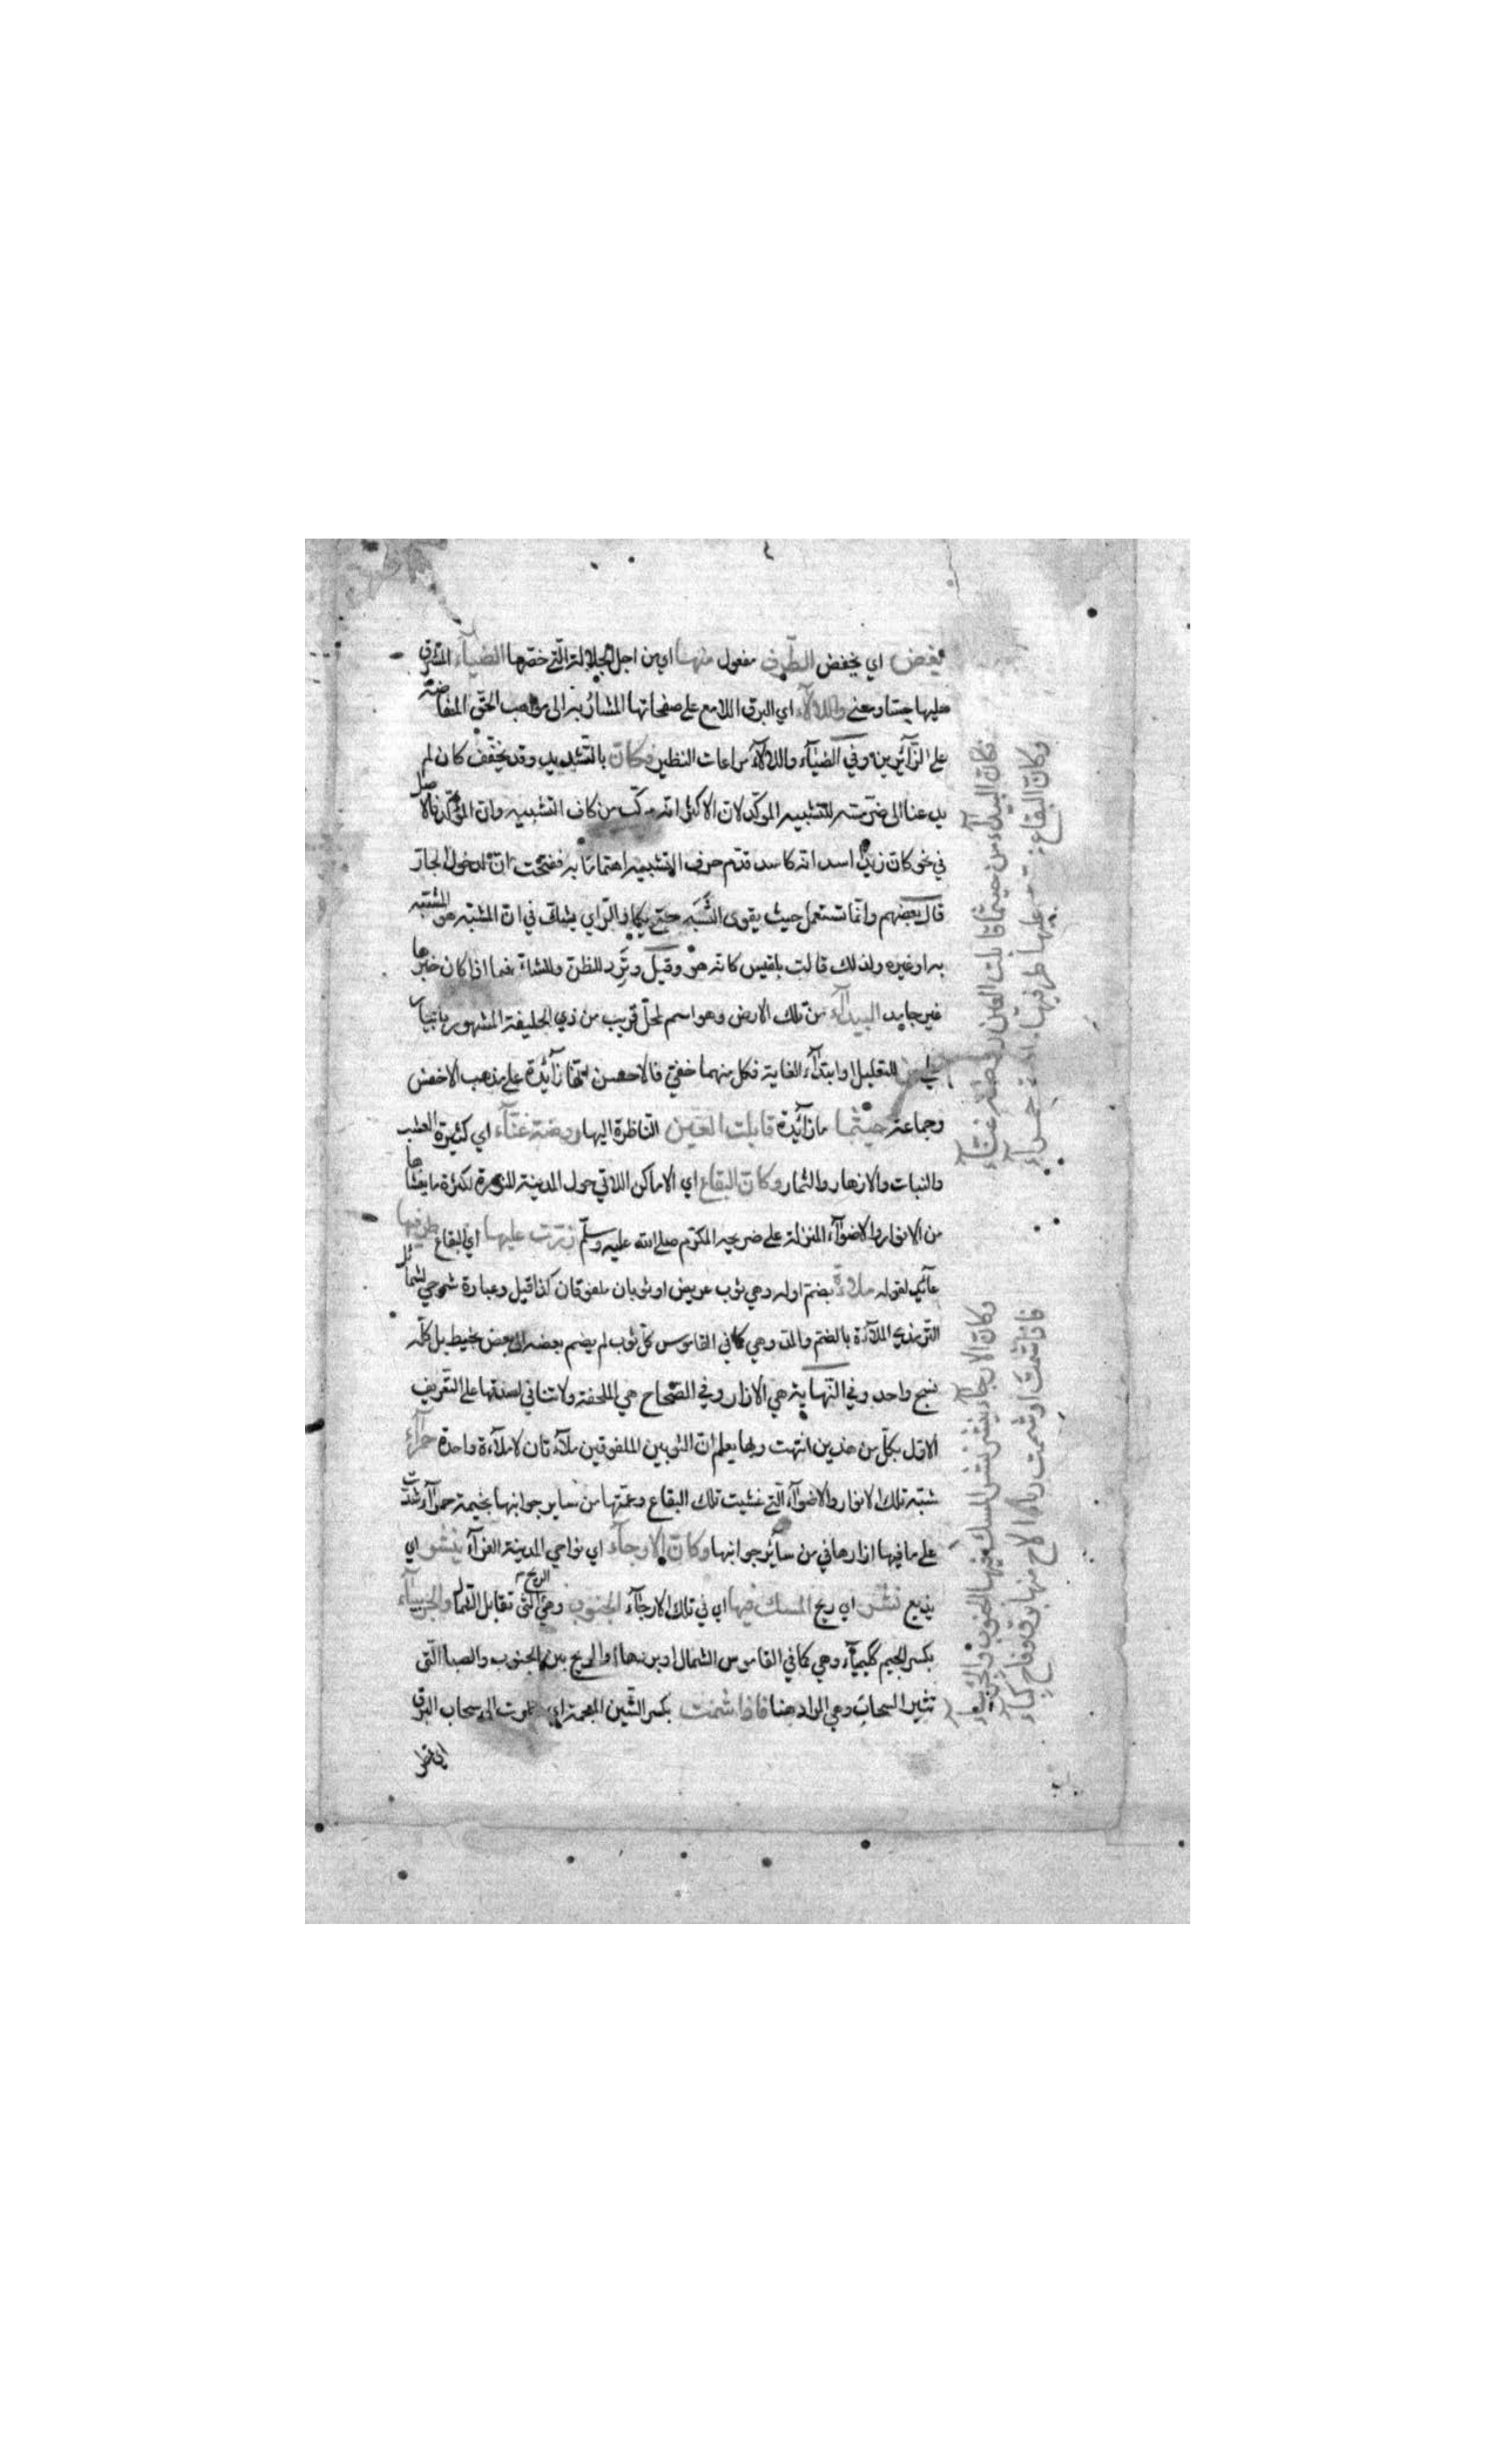 يغض اي يخفض الطرف مفعول منها اي من اجل الجلالة التي خصها الضياء المشرق
عليها حسا ومعنى واللالاء اي البرق اللامع على صفحاتها المشار به الى مواهب الحق المفاضة
على الزائرين وفي الضياء واللالاء مراعات النظير فكان بالتشديد وقد يخفف كان لم
يدعنا الى ضر مسه للتشبيه الموكد لان الاكثر انه مركب من كاف التشبيه وان الموكدة فالاصل
في نحو كان زيدا اسد انه كاسد قدم حرف التشبيه اهتماما به ففتحت ان لدخول الجار
قال بعضهم وانما تستعمل حيث يقوى الشبه حتى يكاد الراي يشك في ان المشبه هو المشبه
به او غيره ولذلك قالت بلقيس كانه هو وقيل وترد للظن والشك فيما اذا كان خبرها
غير جامد البيداء من تلك الارض وهو اسم لمحل قريب من ذي الحليفة المشهور بابيار
علي من التقليل او ابتداء الغاية فكل منهما خفي فالاحسن انها زائدة على مذهب الاخفش
وجماعة حيثما ما زائدة قابلت العين الناظرة اليها روضة غناء اي كثيرة العشب
والنبات والازهار والثمار وكان البقاع اي الاماكن اللاتي حول المدينة المنورة لكثرة ما يغشاها
من الانوار والاضواء المنزلة على ضريحه المكرم صلى الله عليه وسلم زرت عليها اي البقاع طرفيها
عائد لقوله ملاءة بضم اوله وهي ثوب عريض او ثوبان ملفوقان كذا قيل وعبارة شرحي لشمائل
الترمذي الملاءة بالضم والمد وهي كما في القاموس كل ثوب لم يضم بعضه الى بعض بخيط بل كله
نسج واحد وفي النهاية هي الازار وفي الصحاح هي الملحفة ولا تنافي لصدقها على التعريف
الاول بكل من هذين انتهت وبها يعلم ان الثوبين الملفوقين ملاءتان لا ملاءة واحدة حمراء
شبه تلك الانوار والاضواء التي غشيت تلك البقاع وعمتها من ساير جوانبها بخيمة حمراء شدت
على ما فيها ازارها في من سائر جوانبها وكان الارجاء اي نواحي المدينة الغراء ينشر اي
يذيع نشر اي ريح المسك فيها اي في تلك الارجاء الجنوب وهي الريح التي تقابل الشمال والجربياء
بكسر الجيم ككيمياء وهي كما في القاموس الشمال او بردها او الريح بين الجنوب والصبا التي
تثير السحاب وهي المراد هنا فاذا شمت بكسر الشين المعجمة اي نظرت الى سحاب البرق
اين تمطر
فكان البيداء من حيثما قابلت العين روضة غناء
وكان البقاع زرت عليها طرفيها ملاءة حمراء
وكان الارجاء ينشر نشر المسك فيها الجنوب والجربياء
فاذا شمت او شممت رباها لاح منها برق وفاح كباء